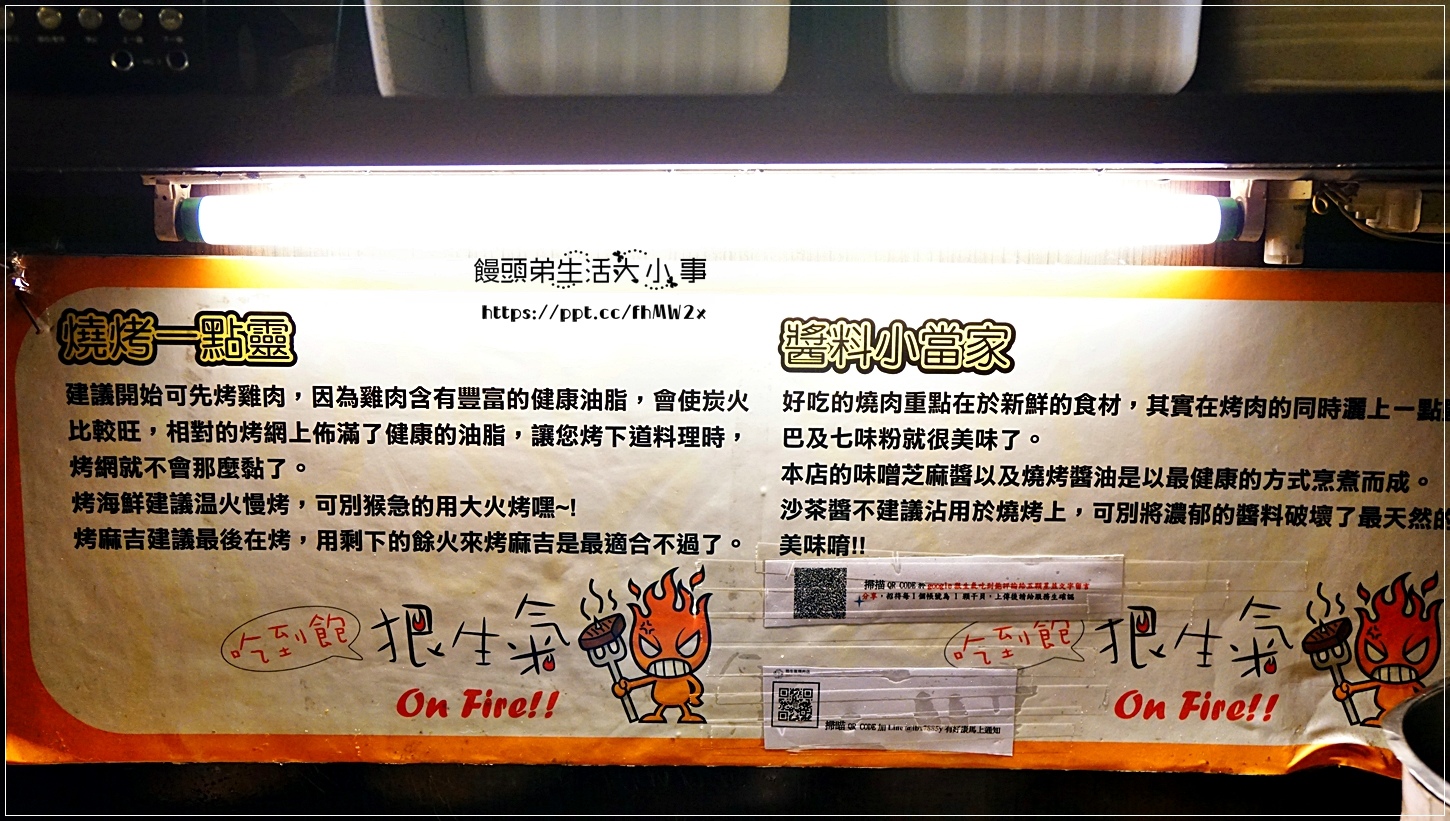 饅頭弟生活大小事
https://ppt.cc/fhMW2x
燒烤一點靈
建議開始可先烤雞肉，因為雞肉含有豐富的健康油脂，會使炭火
比較旺，相對的烤網上佈滿了健康的油脂，讓您烤下道料理時，
烤網就不會那麼黏了。
烤海鮮建議温火慢烤，可別猴急的用大火烤嘿~!
烤麻吉建議最後在烤，用剩下的餘火來烤麻吉是最適合不過了。
吃到飽
很生氣
On Fire!!
醬料小當家
好吃的燒肉重點在於新鮮的食材，其實在烤肉的同時灑上一點
巴及七味粉就很美味了。
本店的味噌芝麻醬以及燒烤醬油是以最健康的方式烹煮而成。
沙茶醬不建議沾用於燒烤上，可別將濃郁的醬料破壞了最天然的
美味唷!!
掃描 QR CODE 於 google 很生氣吃到飽評論給五顆星並文字留言
分享，招待每1個帳號為 1 顆干貝，上傳後請給服務生確認
吃到飽
很生氣
On Fire!!
掃瞄 QR CODE 加 Line 有好康馬上通知